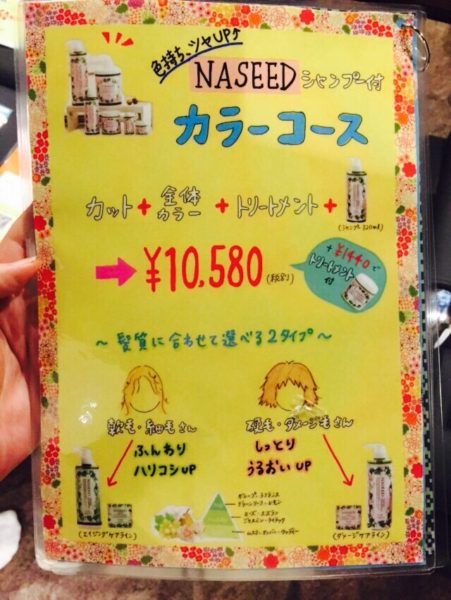 色持ち、ツヤUP↑
NASEED シャンプー付
カラーコース
カット + 全体カラー + トリートメント +
(シャンプー 320ml)
➡ ¥10,580 (税別)
+ ¥1440で
トリートメント
付
〜 髪質に合わせて選べる2タイプ 〜
軟毛・細毛さん
ふんわり
ハリコシUP
硬毛・ダメージ毛さん
しっとり
うるおいUP
NASEED
NASEED
(エイジングケアライン)
(ダメージケアライン)